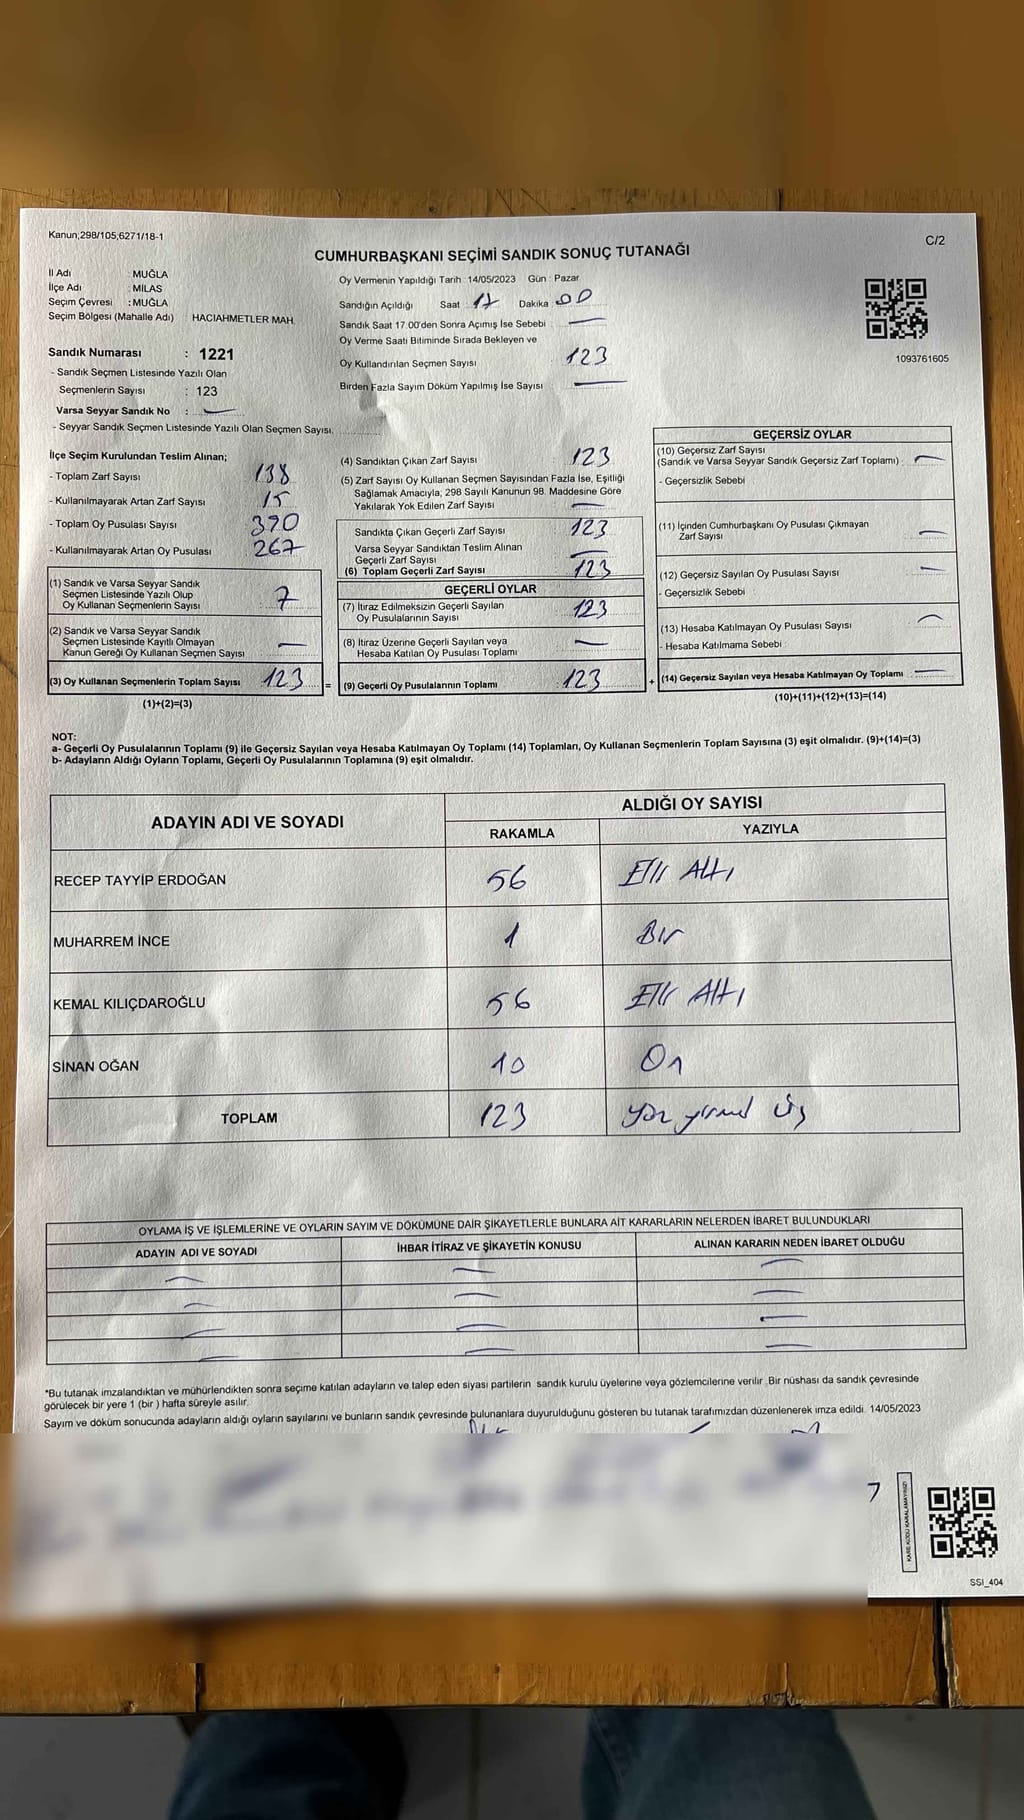 Kanun;298/105;6271/18-1
C/2
CUMHURBAŞKANI SEÇİMİ SANDIK SONUÇ TUTANAĞI
İl Adı : MUĞLA
İlçe Adı : MİLAS
Seçim Çevresi : MUĞLA
Seçim Bölgesi (Mahalle Adı) : HACIAHMETLER MAH.
Sandık Numarası : 1221
- Sandık Seçmen Listesinde Yazılı Olan
Seçmenlerin Sayısı : 123
Varsa Seyyar Sandık No : —
- Seyyar Sandık Seçmen Listesinde Yazılı Olan Seçmen Sayısı:
Oy Vermenin Yapıldığı Tarih : 14/05/2023 Gün : Pazar
Sandığın Açıldığı Saat : 17 Dakika : 00
Sandık Saat 17:00'den Sonra Açımış İse Sebebi : —
Oy Verme Saati Bitiminde Sırada Bekleyen ve
Oy Kullandırılan Seçmen Sayısı : 123
Birden Fazla Sayım Döküm Yapılmış İse Sayısı : —
1093761605
İlçe Seçim Kurulundan Teslim Alınan;
- Toplam Zarf Sayısı : 138
- Kullanılmayarak Artan Zarf Sayısı : 15
- Toplam Oy Pusulası Sayısı : 390
- Kullanılmayarak Artan Oy Pusulası : 267
(1) Sandık ve Varsa Seyyar Sandık
Seçmen Listesinde Yazılı Olup
Oy Kullanan Seçmenlerin Sayısı : 7
(2) Sandık ve Varsa Seyyar Sandık
Seçmen Listesinde Kayıtlı Olmayan
Kanun Gereği Oy Kullanan Seçmen Sayısı : —
(3) Oy Kullanan Seçmenlerin Toplam Sayısı : 123 =
(1)+(2)=(3)
(4) Sandıktan Çıkan Zarf Sayısı : 123
(5) Zarf Sayısı Oy Kullanan Seçmen Sayısından Fazla İse, Eşitliği
Sağlamak Amacıyla; 298 Sayılı Kanunun 98. Maddesine Göre
Yakılarak Yok Edilen Zarf Sayısı : —
Sandıkta Çıkan Geçerli Zarf Sayısı : 123
Varsa Seyyar Sandıktan Teslim Alınan
Geçerli Zarf Sayısı : —
(6) Toplam Geçerli Zarf Sayısı : 123
GEÇERLİ OYLAR
(7) İtiraz Edilmeksizin Geçerli Sayılan
Oy Pusulalarının Sayısı : 123
(8) İtiraz Üzerine Geçerli Sayılan veya
Hesaba Katılan Oy Pusulası Toplamı : —
(9) Geçerli Oy Pusulalarının Toplamı : 123 +
GEÇERSİZ OYLAR
(10) Geçersiz Zarf Sayısı
(Sandık ve Varsa Seyyar Sandık Geçersiz Zarf Toplamı) : —
- Geçersizlik Sebebi :
(11) İçinden Cumhurbaşkanı Oy Pusulası Çıkmayan
Zarf Sayısı : —
(12) Geçersiz Sayılan Oy Pusulası Sayısı : —
- Geçersizlik Sebebi :
(13) Hesaba Katılmayan Oy Pusulası Sayısı : —
- Hesaba Katılmama Sebebi :
(14) Geçersiz Sayılan veya Hesaba Katılmayan Oy Toplamı : —
(10)+(11)+(12)+(13)=(14)
NOT:
a- Geçerli Oy Pusulalarının Toplamı (9) ile Geçersiz Sayılan veya Hesaba Katılmayan Oy Toplamı (14) Toplamları, Oy Kullanan Seçmenlerin Toplam Sayısına (3) eşit olmalıdır. (9)+(14)=(3)
b- Adayların Aldığı Oyların Toplamı, Geçerli Oy Pusulalarının Toplamına (9) eşit olmalıdır.
ADAYIN ADI VE SOYADI
ALDIĞI OY SAYISI
RAKAMLA YAZIYLA
RECEP TAYYİP ERDOĞAN 56 Elli Altı
MUHARREM İNCE 1 Bir
KEMAL KILIÇDAROĞLU 56 Elli Altı
SİNAN OĞAN 10 On
TOPLAM 123 Yüz yirmi üç
OYLAMA İŞ VE İŞLEMLERİNE VE OYLARIN SAYIM VE DÖKÜMÜNE DAİR ŞİKAYETLERLE BUNLARA AİT KARARLARIN NELERDEN İBARET BULUNDUKLARI
ADAYIN ADI VE SOYADI İHBAR İTİRAZ VE ŞİKAYETİN KONUSU ALINAN KARARIN NEDEN İBARET OLDUĞU
— — —
— — —
— — —
— — —
*Bu tutanak imzalandıktan ve mühürlendikten sonra seçime katılan adayların ve talep eden siyasi partilerin sandık kurulu üyelerine veya gözlemcilerine verilir. Bir nüshası da sandık çevresinde
görülecek bir yere 1 (bir) hafta süreyle asılır.
Sayım ve döküm sonucunda adayların aldığı oyların sayılarını ve bunların sandık çevresinde bulunanlara duyurulduğunu gösteren bu tutanak tarafımızdan düzenlenerek imza edildi. 14/05/2023
KARE KODU KARALAMAYINIZ!
SSI_404